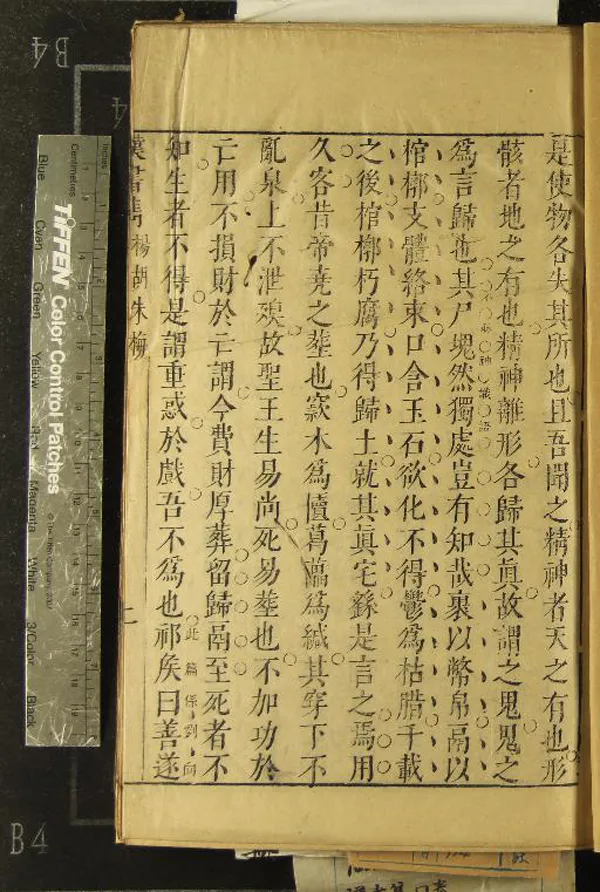 是使物各失其所也且吾聞之精神者天之有也形
骸者地之有也精神離形各歸其眞故謂之鬼鬼之
爲言歸也其尸塊然獨處豈有知哉裹以幣帛鬲以
棺槨支體絡束口含玉石欲化不得鬱爲枯腊千載
之後棺槨朽腐乃得歸土就其眞宅繇是言之焉用
久客昔帝堯之塟也窾木爲匵葛藟爲緘其穿下不
亂泉上不泄殠故聖王生易尚死易塟也不加功於
亡用不損財於亡謂今費財厚葬留歸鬲至死者不
知生者不得是謂重惑於戲吾不爲也祁矦曰善遂
此篇係劉向
漢書雋 楊胡朱梅
上
B4
4
B4
Inches
Centimetres
TIFFEN Color Control Patches
© The Tiffen Company, 2007
Blue
Cyan
Green
Yellow
Red
Magenta
White
3/Color
Black